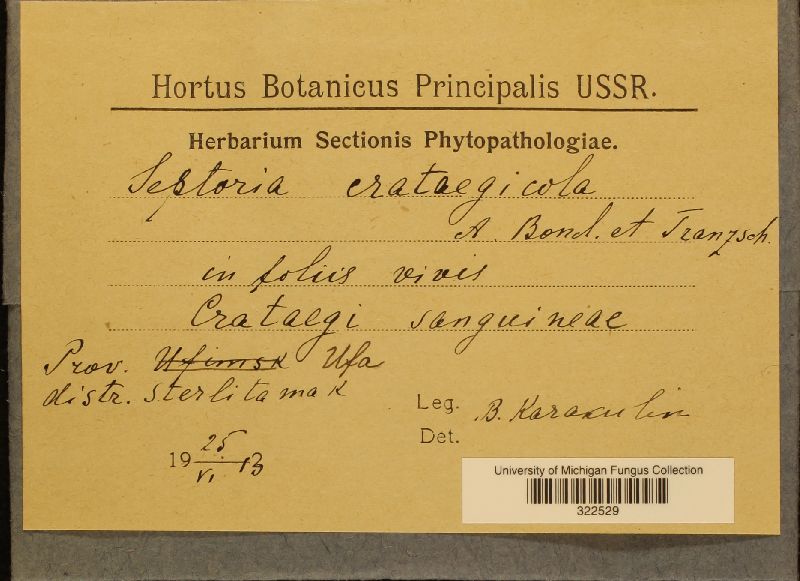 Hortus Botanicus Principalis USSR.
Herbarium Sectionis Phytopathologiae.
Septoria crataegicola
A. Bond. et Tranzsch.
in foliis vivis
Crataegi sanguineae
Prov. Ufimsk Ufa
distr. Sterlitamak
Leg. B. Karakulin
Det.
19 25/VI 13
University of Michigan Fungus Collection
322529